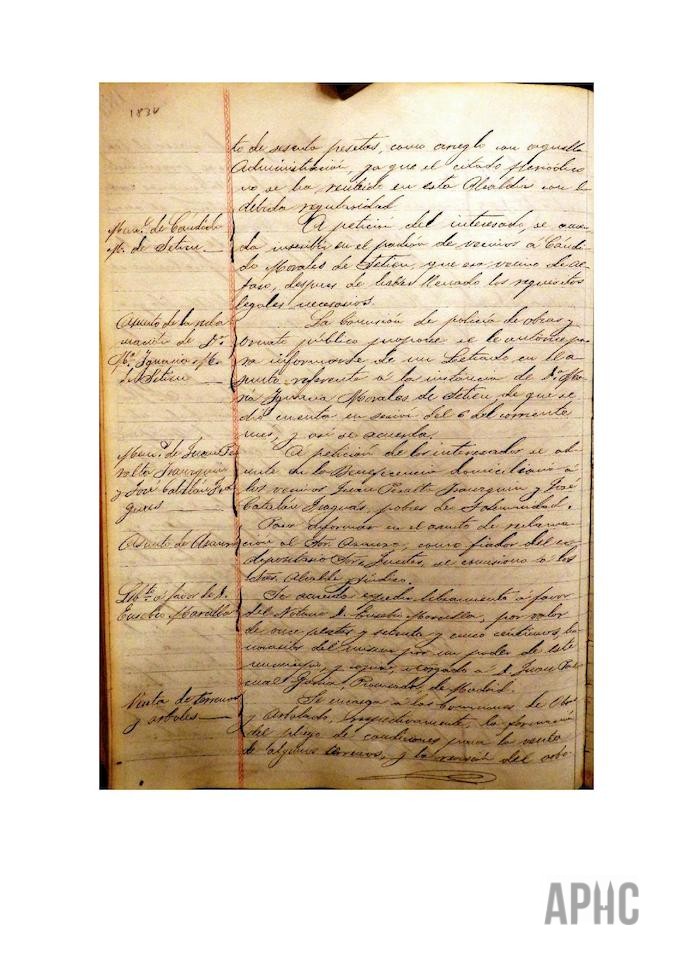 1834
to de sesenta pesetas, como arreglo con aquella
Administración, ya que el citado periódico
no se ha recibido en esta Alcaldía con la
debida regularidad.
de Candido
M. de Setien
A petición del interesado, se acuer-
da inscribir en el padrón de vecinos á Cándi-
do Morales de Setien, que era vecino de Al-
faro, despues de haber llenado los requisitos
legales necesarios.
Asunto de la recla
mación de D.ª
M.ª Ignacia M.
de Setien
La Comisión de policía de obras y
ornato público propone se le autorice pa-
ra informarse de un Letrado en el a-
sunto referente á la instancia de D.ª Ma-
ría Ignacia Morales de Setien de que se
dió cuenta en sesión del 6 del corriente
mes, y así se acuerda.
de Juan Pe
ralta
y José Catalán
A petición de los interesados se
en la Beneficencia domiciliaria á
los vecinos Juan Peralta y José
Catalán Iraguas, pobres de Solemnidad.
Asunto de
Para informar en el asunto de reclama-
ción al Sor. como fiador del ex-
depositario Sor. Fuertes, se comisiona á los
Sres. Alcalde y Síndico.
á favor de D.
Eusebio Marcilla
Se acuerda expedir libramiento á favor
del Notario D. Eusebio Marcilla, por valor
de once pesetas y setenta y cinco centimos, ho-
norarios del mismo por un poder de este
municipio, y copia, otorgado á D. Juan Pas-
cual García, Procurador, de Madrid.
Venta de terrenos
y arboles
Se encarga á las Comisiones de Obras
y Arbolado, respectivamente, la formación
del pliego de condiciones para la venta
de algunos terrenos, y la revisión del arbo-
APHC